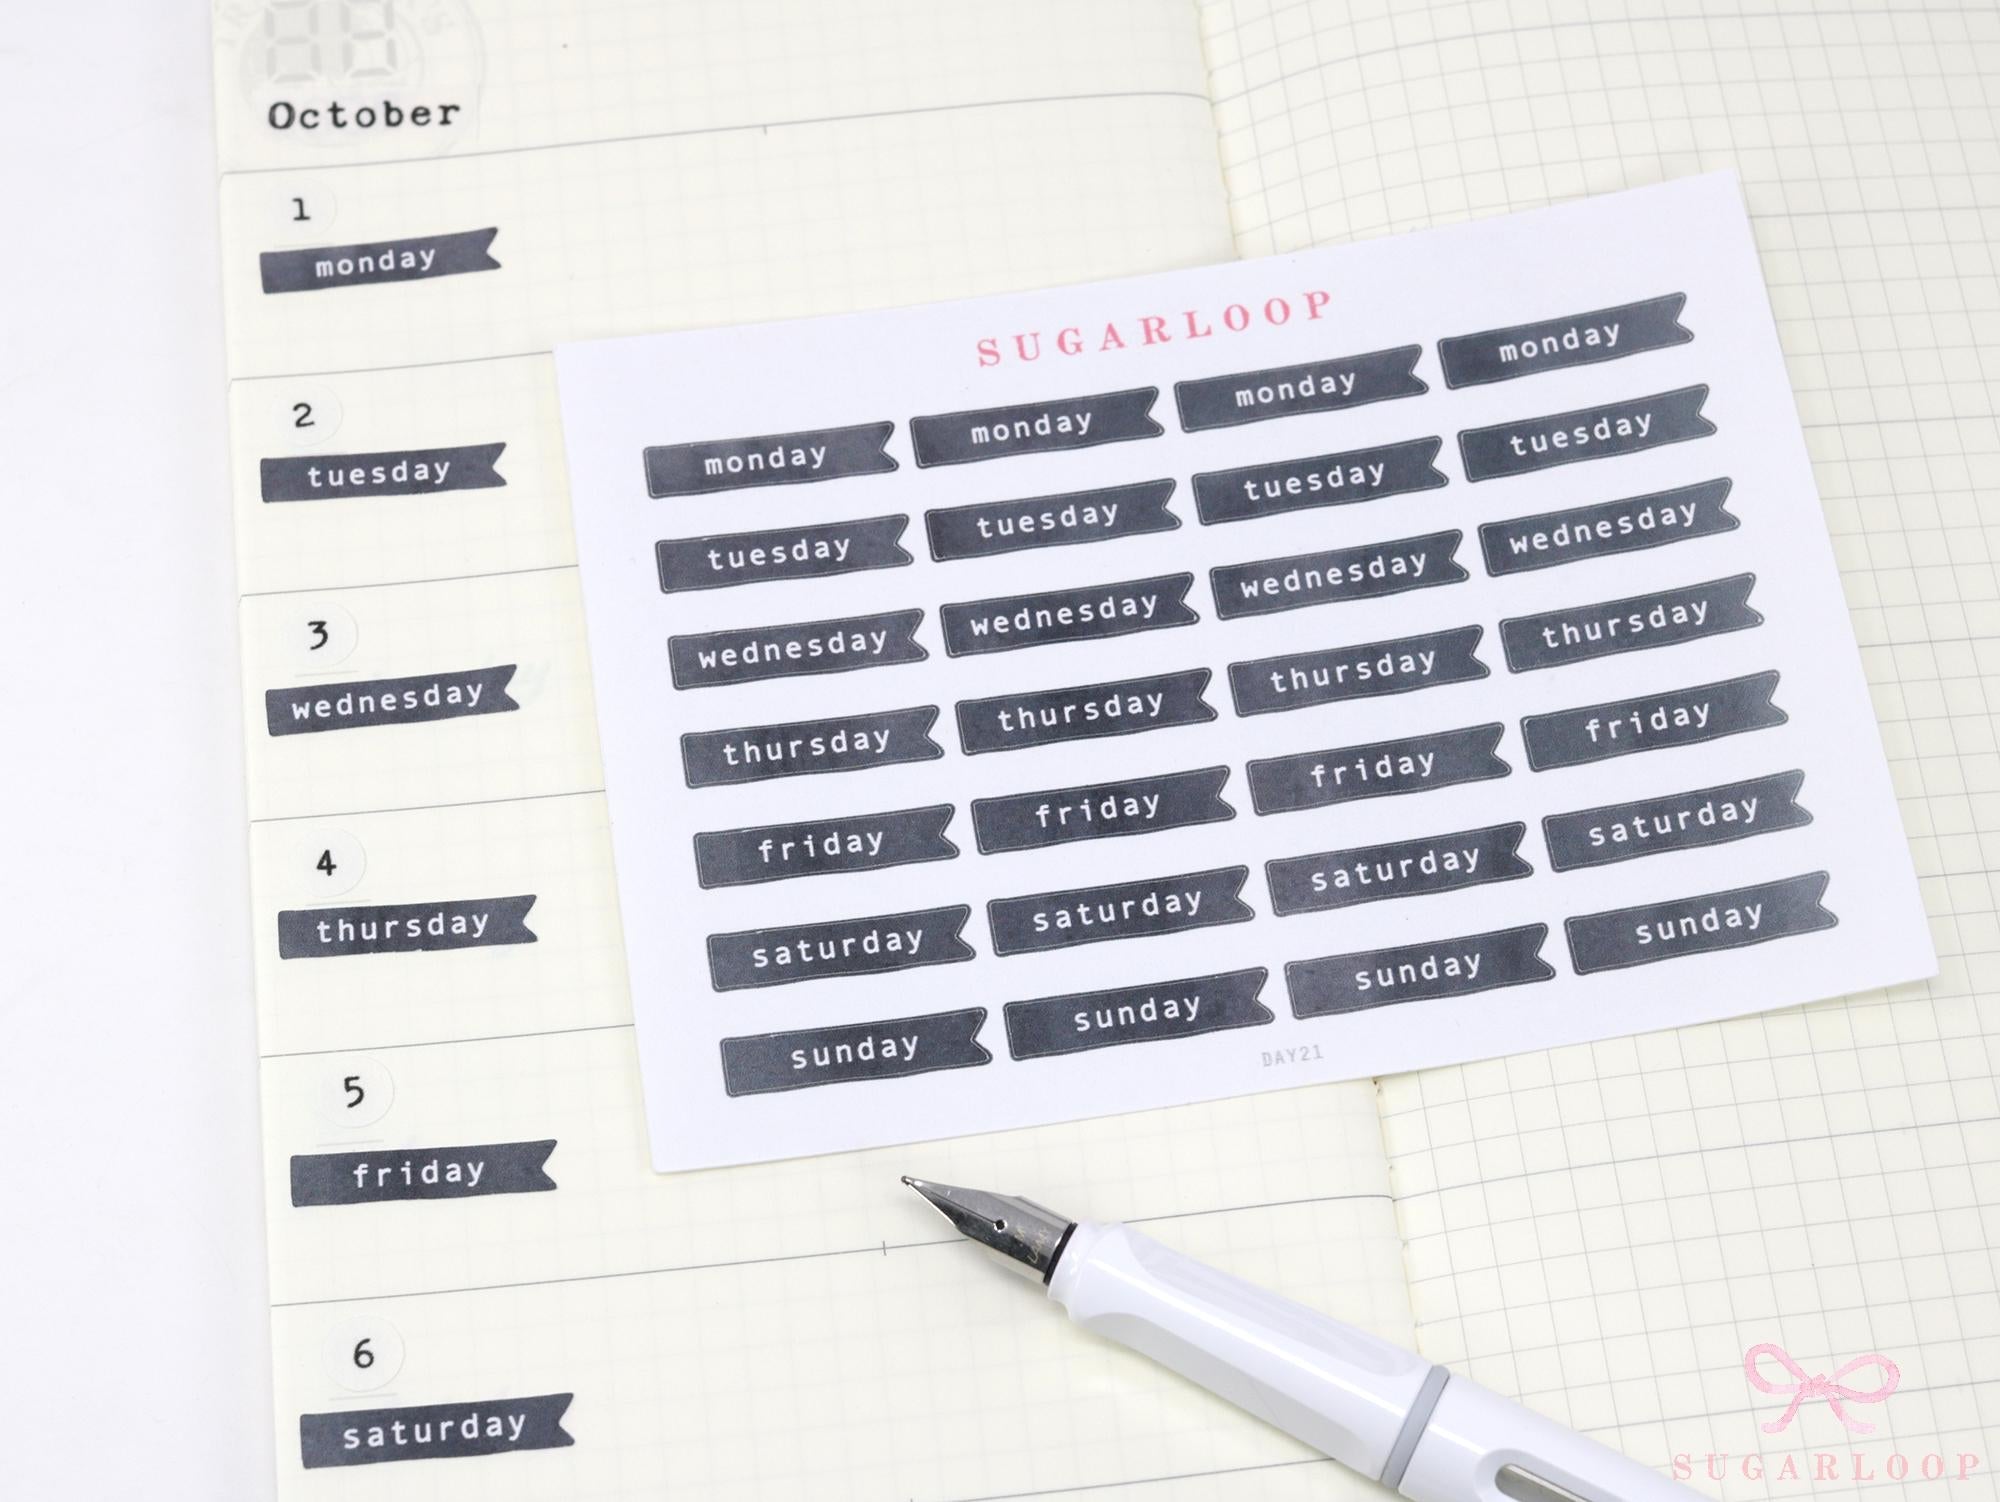 October
1
monday
2
tuesday
3
wednesday
4
thursday
5
friday
6
saturday
SUGARLOOP
monday monday monday monday
tuesday tuesday tuesday tuesday
wednesday wednesday wednesday wednesday
thursday thursday thursday thursday
friday friday friday friday
saturday saturday saturday saturday
sunday sunday sunday sunday
DAY21
SUGARLOOP